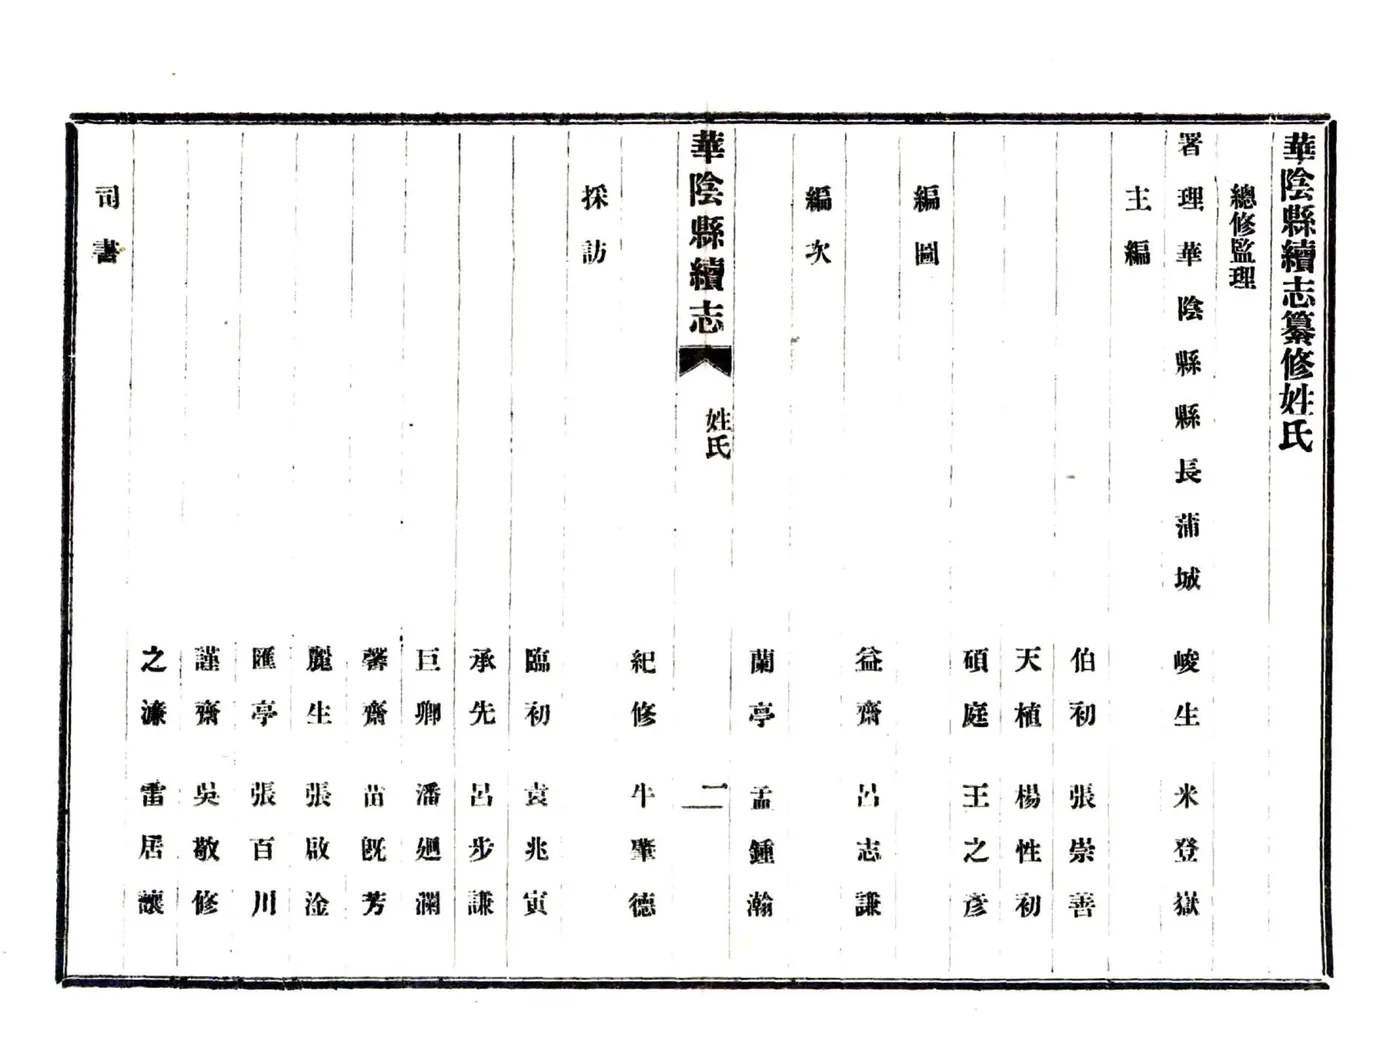 華陰縣續志纂修姓氏
總修監理
署理華陰縣縣長蒲城 峻生 米登嶽
主編
伯初 張崇善
天植 楊性初
碩庭 王之彥
編圖
益齋 呂志謙
編次
蘭亭 孟鍾瀚
華陰縣續志 姓氏 一
紀修 牛肇德
採訪
臨初 袁兆寅
承先 呂步謙
巨卿 潘廻瀾
馨齋 苗旣芳
麗生 張啟淦
匯亭 張百川
謹齋 吳敬修
之濂 雷居讓
司書